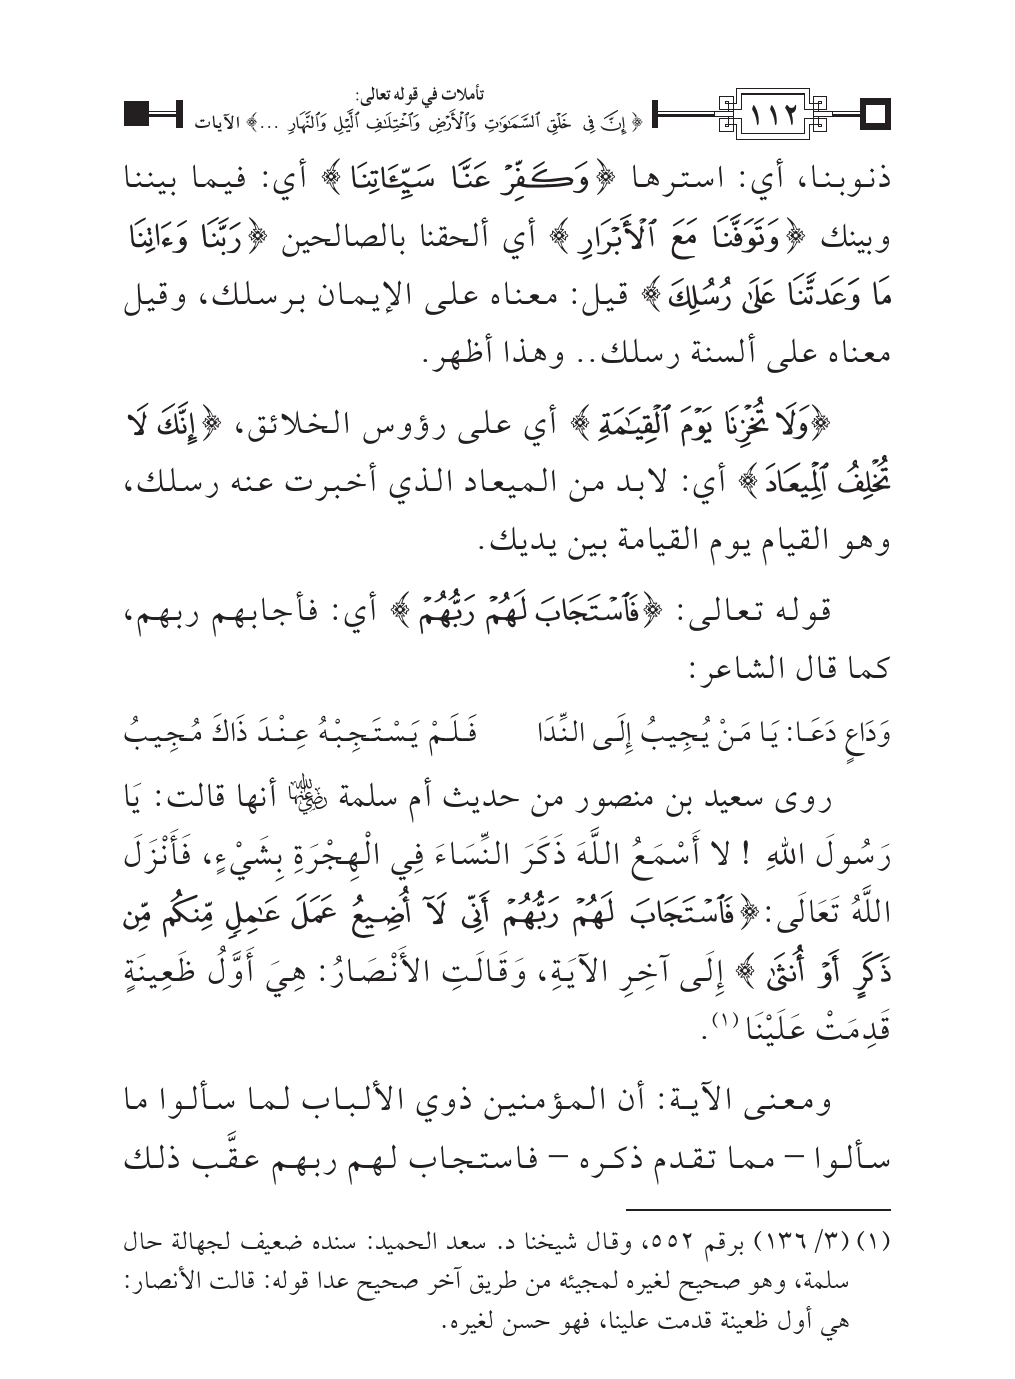 ١١٢
تأملات في قوله تعالى:
﴿ إِنَّ فِي خَلْقِ ٱلسَّمَٰوَٰتِ وَٱلْأَرْضِ وَٱخْتِلَٰفِ ٱلَّيْلِ وَٱلنَّهَارِ ...﴾ الآيات
ذنوبنا، أي: استرها ﴿ وَكَفِّرْ عَنَّا سَيِّـَٔاتِنَا ﴾ أي: فيما بيننا
وبينك ﴿ وَتَوَفَّنَا مَعَ ٱلْأَبْرَارِ ﴾ أي ألحقنا بالصالحين ﴿ رَبَّنَا وَءَاتِنَا
مَا وَعَدتَّنَا عَلَىٰ رُسُلِكَ ﴾ قيل: معناه على الإيمان برسلك، وقيل
معناه على ألسنة رسلك.. وهذا أظهر.
﴿وَلَا تُخْزِنَا يَوْمَ ٱلْقِيَٰمَةِ ﴾ أي على رؤوس الخلائق، ﴿ إِنَّكَ لَا
تُخْلِفُ ٱلْمِيعَادَ ﴾ أي: لابد من الميعاد الذي أخبرت عنه رسلك،
وهو القيام يوم القيامة بين يديك.
قوله تعالى: ﴿فَٱسْتَجَابَ لَهُمْ رَبُّهُمْ ﴾ أي: فأجابهم ربهم،
كما قال الشاعر:
وَدَاعٍ دَعَا: يَا مَنْ يُجِيبُ إِلَى النِّدَا فَلَمْ يَسْتَجِبْهُ عِنْدَ ذَاكَ مُجِيبُ
روى سعيد بن منصور من حديث أم سلمة رضي الله عنها أنها قالت: يَا
رَسُولَ اللهِ ! لا أَسْمَعُ اللَّهَ ذَكَرَ النِّسَاءَ فِي الْهِجْرَةِ بِشَيْءٍ، فَأَنْزَلَ
اللَّهُ تَعَالَى: ﴿فَٱسْتَجَابَ لَهُمْ رَبُّهُمْ أَنِّي لَآ أُضِيعُ عَمَلَ عَٰمِلٍ مِّنكُم مِّن
ذَكَرٍ أَوْ أُنثَىٰ ﴾ إِلَى آخِرِ الآيَةِ، وَقَالَتِ الأَنْصَارُ: هِيَ أَوَّلُ ظَعِينَةٍ
قَدِمَتْ عَلَيْنَا (١).
ومعنى الآية: أن المؤمنين ذوي الألباب لما سألوا ما
سألوا – مما تقدم ذكره – فاستجاب لهم ربهم عقَّب ذلك
(١) (٣/ ١٣٦) برقم ٥٥٢، وقال شيخنا د. سعد الحميد: سنده ضعيف لجهالة حال
سلمة، وهو صحيح لغيره لمجيئه من طريق آخر صحيح عدا قوله: قالت الأنصار:
هي أول ظعينة قدمت علينا، فهو حسن لغيره.